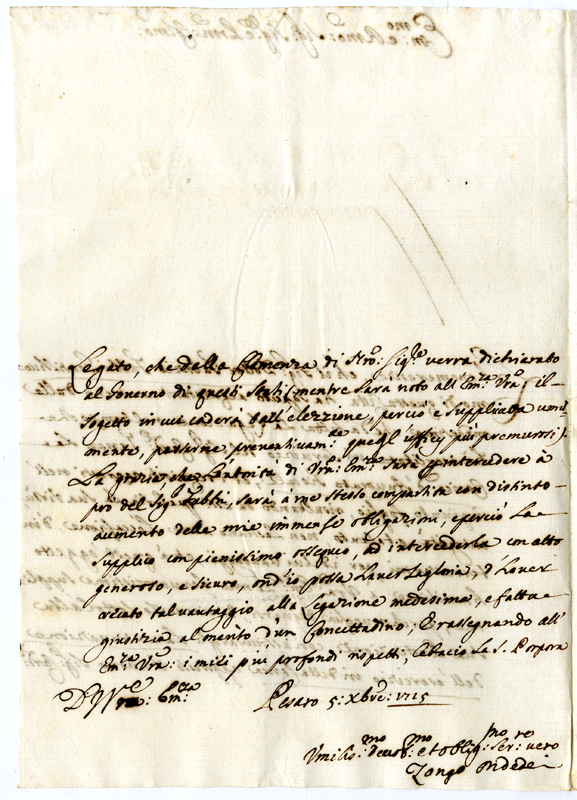 Legato, che dalla Clemenza di Nro: Sig.re verrà dichiarato
al Governo di questi Stati (mentre sarà noto all'Em.za Vra: il
sogetto in cui caderà tall'elezzione, perciò è supplicata umil
mente, passarne preventivam.te quegl'uffici più premurosi).
La grazia, che l'autorità di Vra: Em.za sarà intercedere à
prò del Sig.r Fabbri, sarà à me stesso compartita con distinto
aumento delle mie immense obligazioni, e perciò La
supplico con pienissimo ossequio, ad intercederla con atto
generoso, e sicuro, ond'io possa haver la gloria, d'haver
recato tal vantaggio alla Legazione medesima, e fatta
giustizia al merito d'un Concittadino; E rassegnando all'
Em.za Vra: i miei più profondi rispetti, le bacio la S. Porpora
D. Vra: Em.za
Pesaro 5: Xbre: 1715
Umiliss.mo devot.mo et oblig.mo ser.re vero
Zongo Ondedei